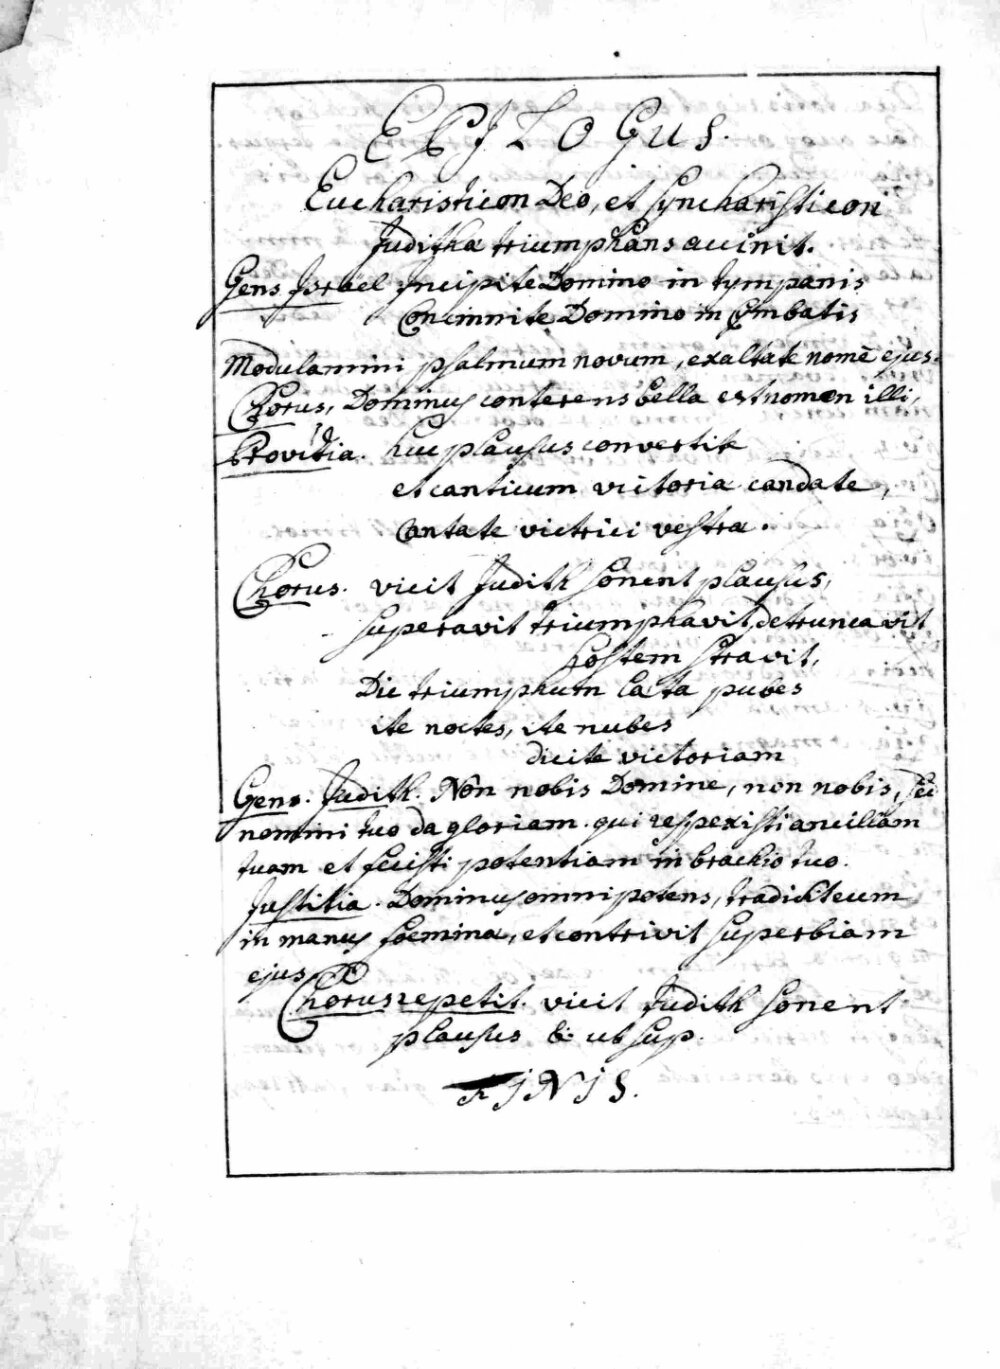 EPJLOGUS.
Eucharisticon Deo, et Syncharisticon
Juditha triumphans accinit.
Gens Israel Incipite Domino in tympanis
Concinnite Domino in Cymbalis
Modulamini psalmum novum, exaltate nomē ejus.
Chorus, Dominus conterens bella est nomen illi,
Providia. huc plausus convertite
et canticum victoria candate,
Cantate victrici vestra.
Chorus. vicit Judith sonent plausus,
superavit triumphavit, detruncavit
hostem stravit,
Dic triumphum laeta pubes
ite noctes, ite nubes
dicite victoriam
Gens. Judith. Non nobis Domine, non nobis, sed
nomini tuo da gloriam. qui respexisti ancillam
tuam et fecisti potentiam in brachio tuo.
Justitia. Dominus omnipotens, tradidit eum
in manus foemina, et contrivit superbiam
ejus
Chorus repetit. vicit Judith sonent
plausus &: ut sup.
FJNJS.